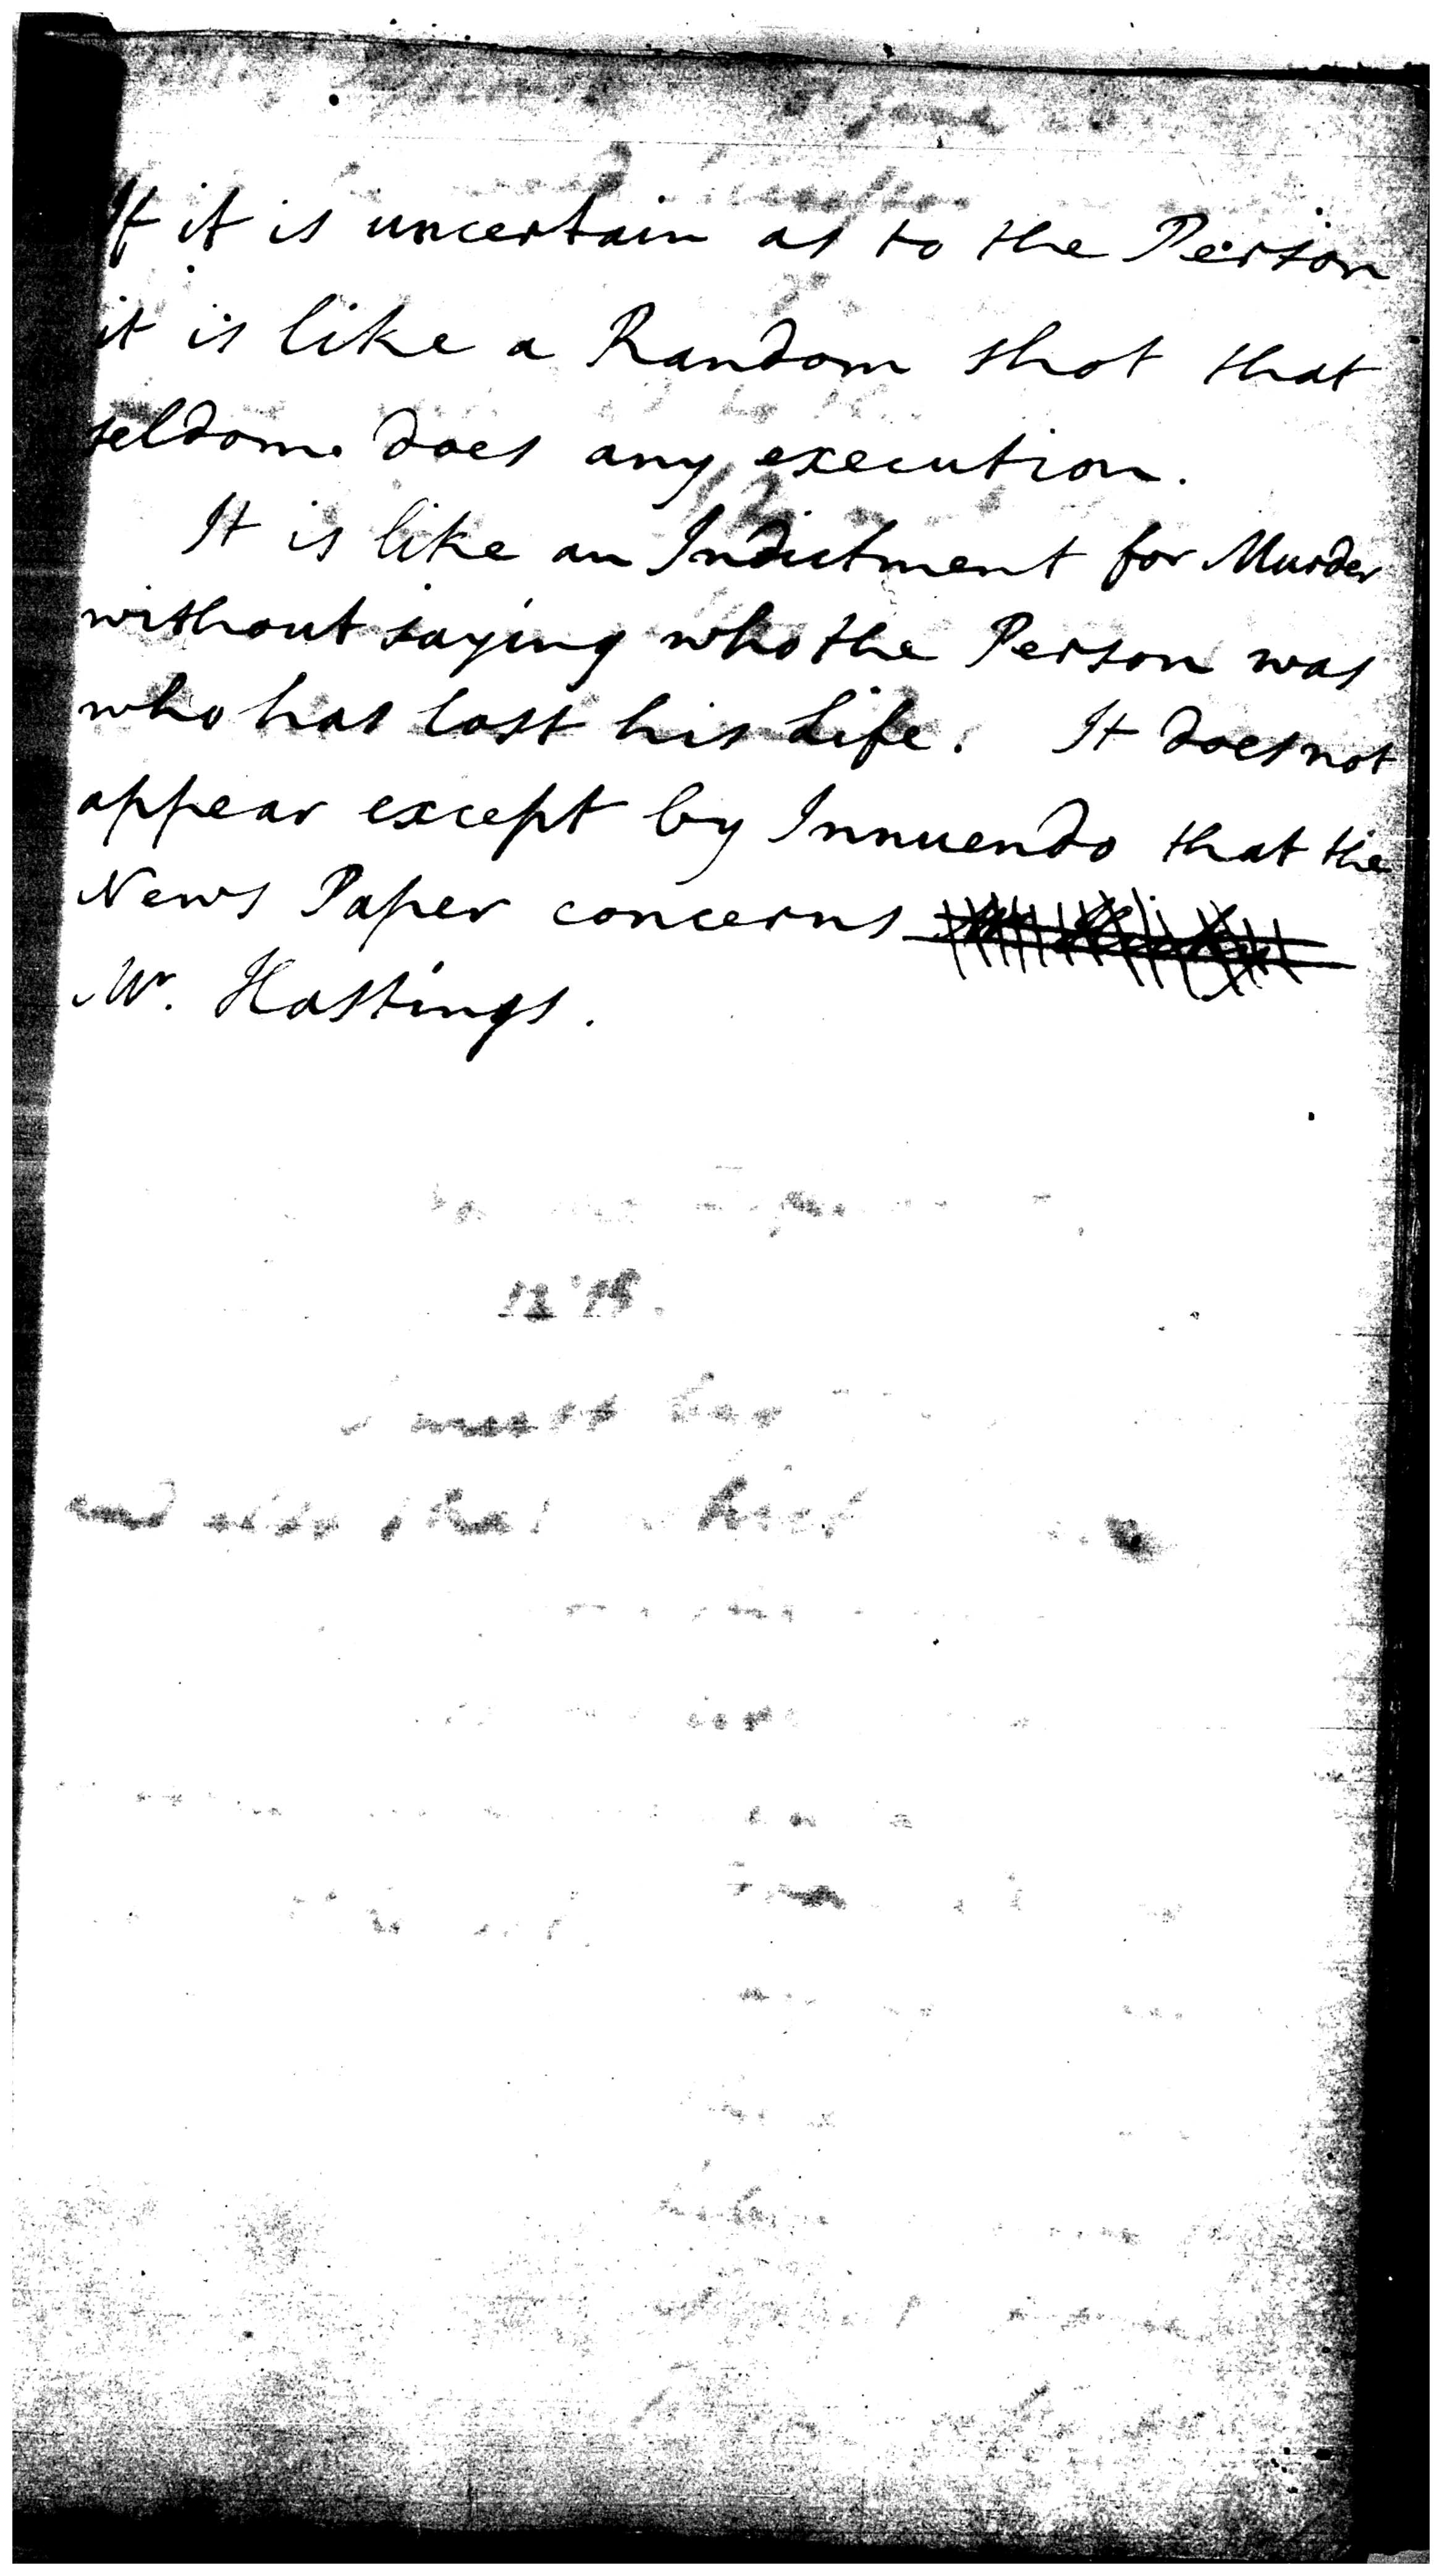 If it is uncertain as to the Person
it is like a Random shot that
seldom does any execution.
It is like an Indictment for Murder
without saying who the Person was
who has lost his Life. It does not
appear except by Innuendo that the
News Paper concerns
Mr. Hastings.